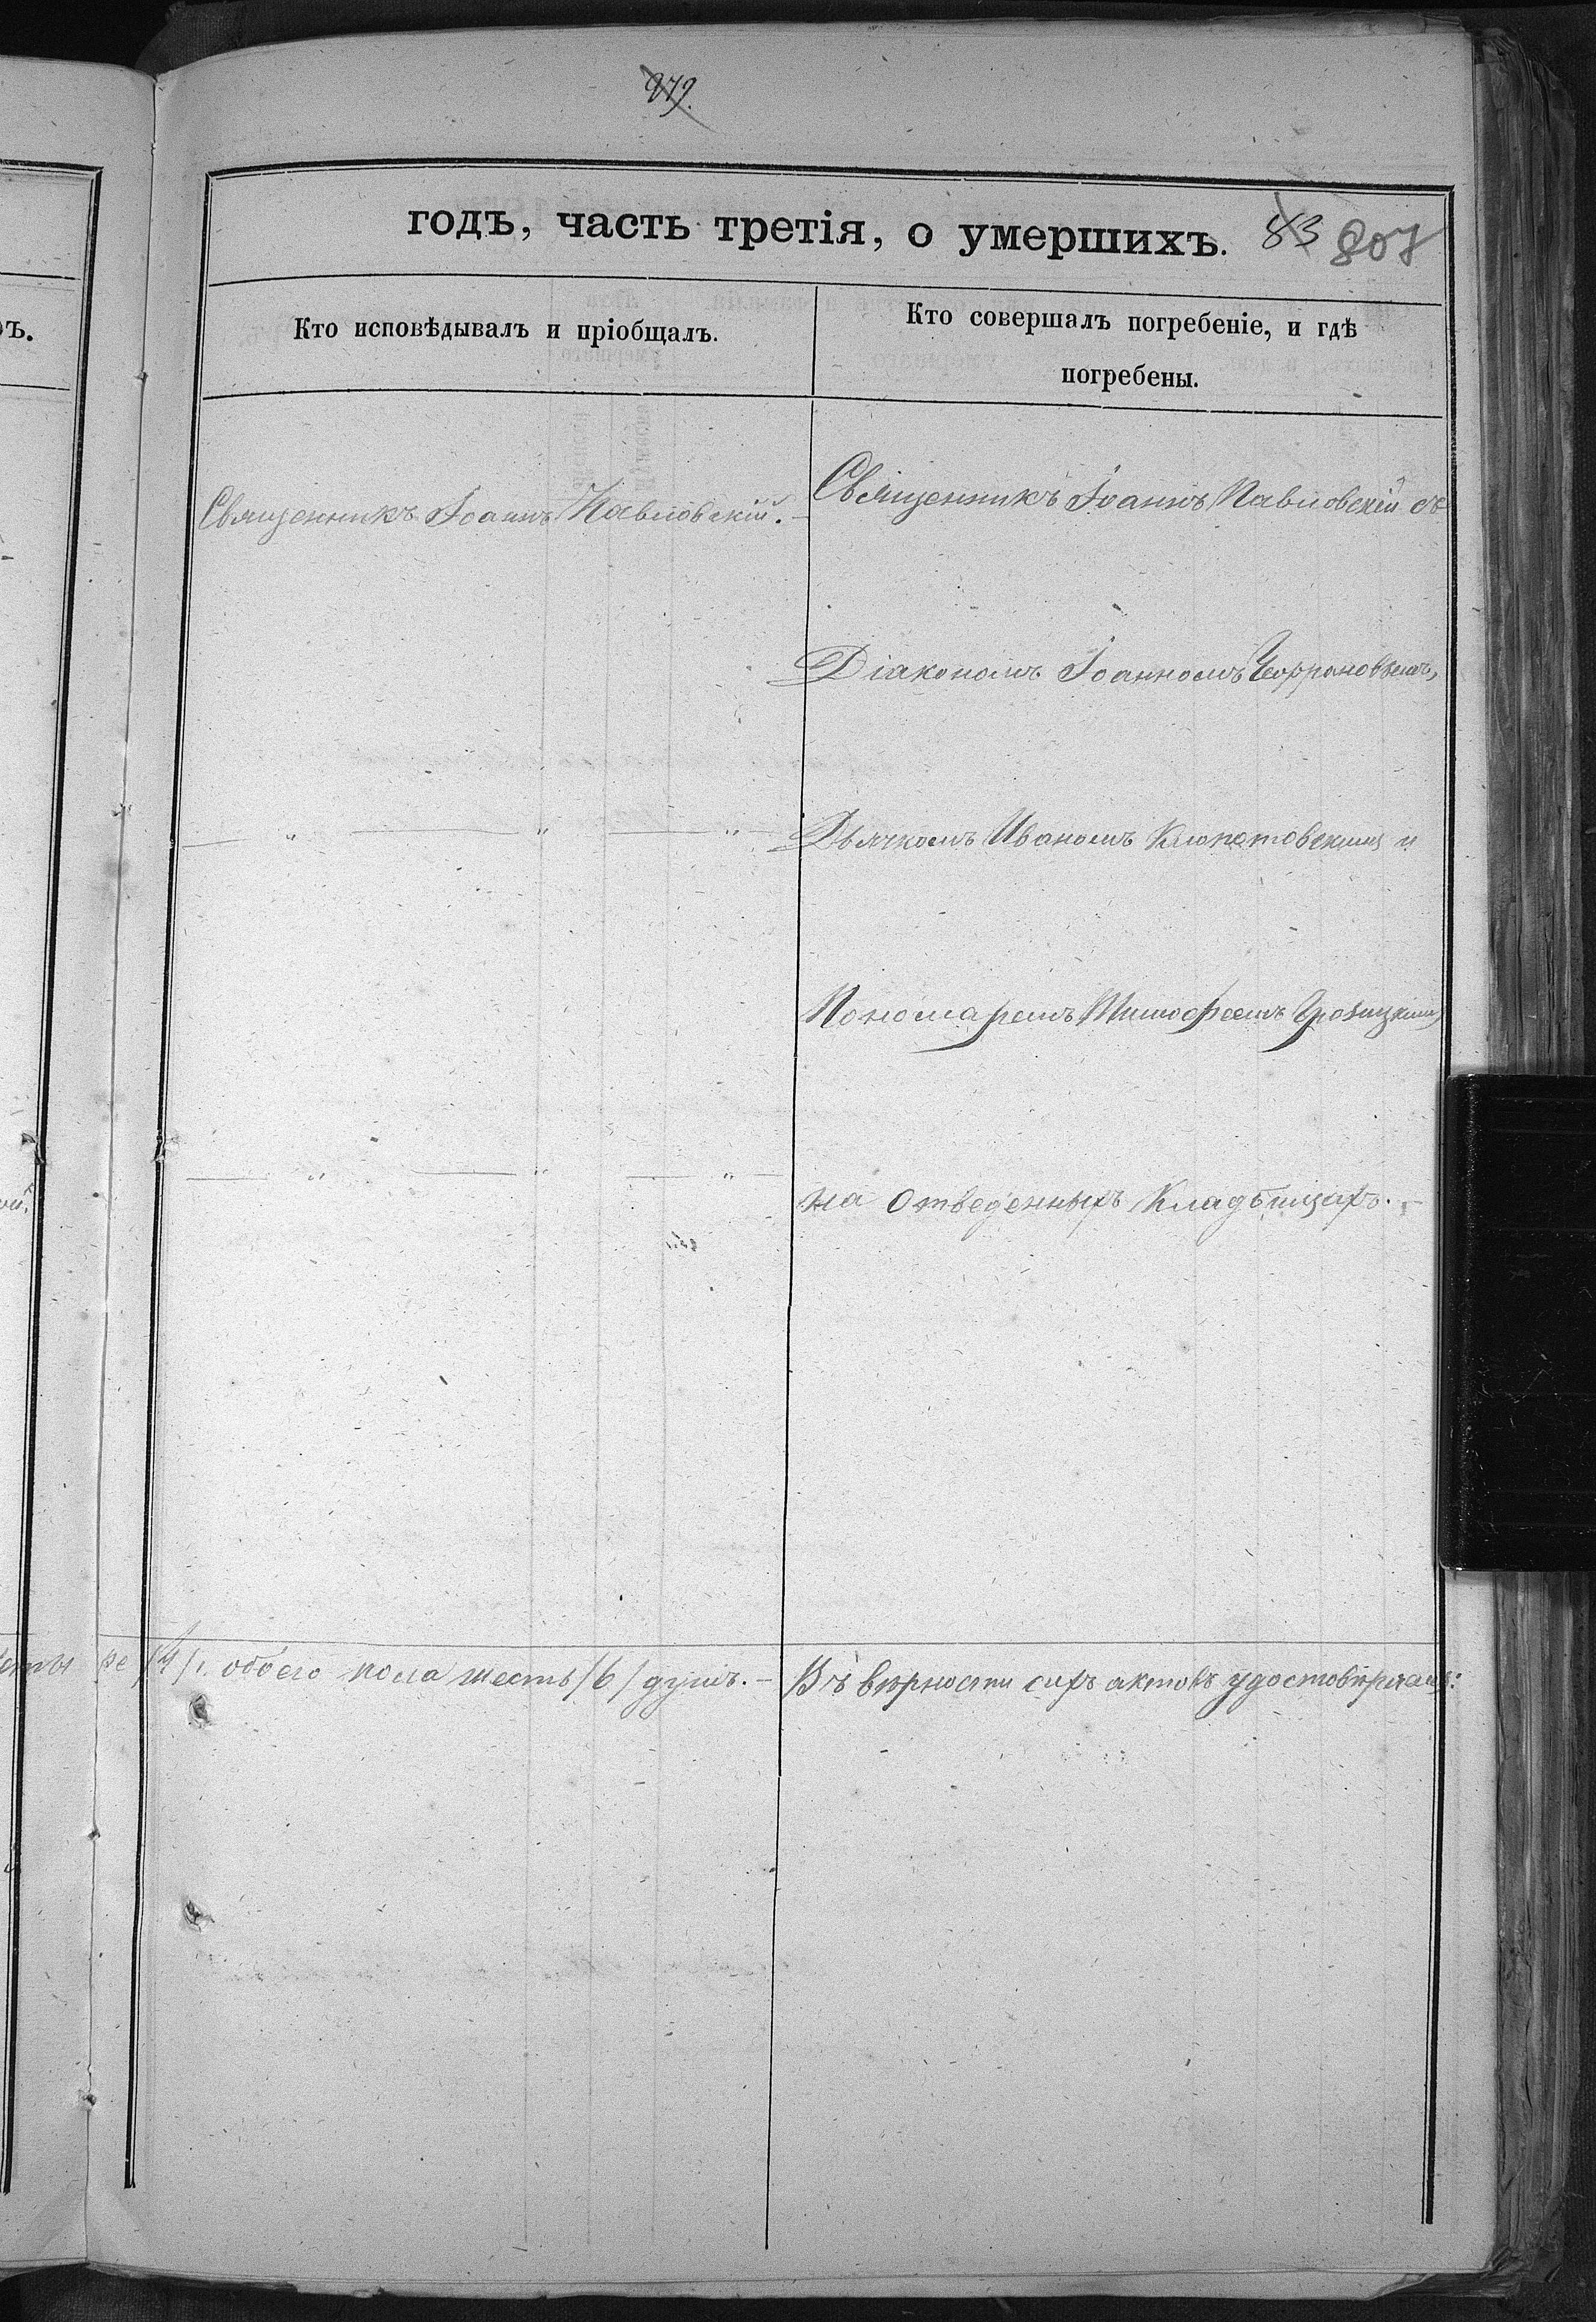 279.
годъ, часть третія, о умершихъ. 83 807
Кто исповѣдывалъ и пріобщалъ.
Кто совершалъ погребеніе, и гдѣ
погребены.
Священникъ Іоаннъ Павловскій.
Священникъ Іоаннъ Павловскій съ
Діакономъ Іоанномъ
Дьячкомъ Иваномъ Клопотовскимъ и
Пономаремъ Тимофеемъ
на отведенныхъ Кладбищахъ.
ре /4/. обоего пола шесть /6/ душъ. –
Въ вѣрности сихъ актовъ удостовѣряемъ: